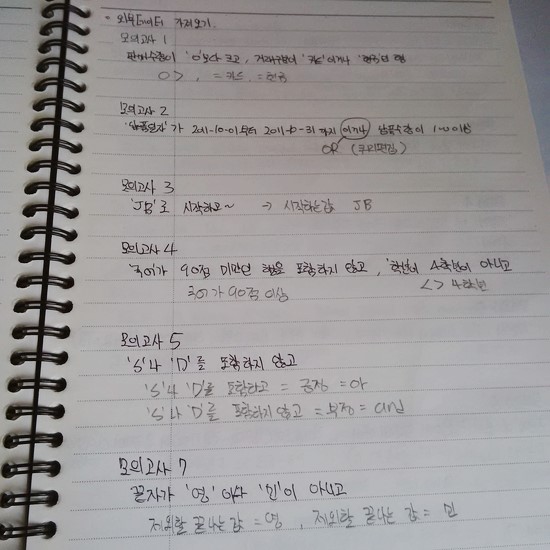 • 외부데이터 가져오기.
모의고사 1
판매수량이 '0'보다 크고, 거래구분이 '카드'이거나 '현금'인 행
0 > , = 카드 = 현금
모의고사 2
'납품일자'가 2011-10-01부터 2011-10-31까지 이거나 납품수량이 100이상
OR (쿼리편집)
모의고사 3
'JB'로 시작하고~ → 시작하는값 JB
모의고사 4
'국어가 90점 미만인 행을 포함하지 않고, '학년이 4학년이 아니고
국어가 90점 이상 <> 4학년
모의고사 5
'S'나 'D'를 포함하지 않고
'S'나 'D'를 포함하고 = 긍정 = or
'S'나 'D'를 포함하지 않고 = 부정 = and
모의고사 7
끝자가 '영'이나 '민'이 아니고
제외할 끝나는 값 = 영, 제외할 끝나는 값 = 민